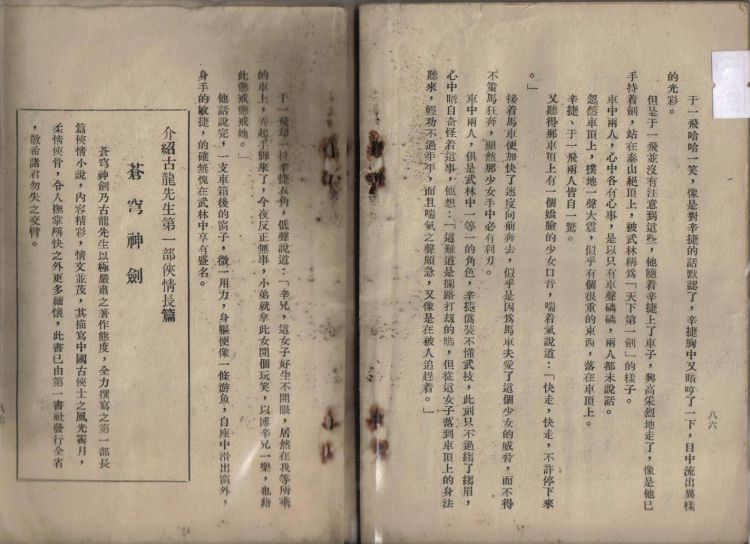 八六
于一飛哈哈一笑，像是對辛捷的話默認了，辛捷胸中又暗哼了一下，目中流出異樣
的光彩。
但是于一飛並沒有注意到這些，他隨着辛捷上了車子，興高采烈地走了，像是他已
手持着劍，站在泰山絕頂上，被武林稱爲「天下第一劍」的樣子。
車中兩人，心中各有心事，是以只有車聲磷磷，兩人都未說話。
忽然車頂上，撲地一聲大震，似乎有個很重的東西，落在車頂上。
辛捷、于一飛兩人皆自一驚。
又聽得那車頂上有一個嬌脆的少女口音，喘着氣說道：「快走，快走，不許停下來
。」
接着馬車便加快了速度向前奔去，似乎是因爲馬車夫受了這個少女的威脅，而不得
不策馬狂奔，顯然那少女手中必有利刃。
車中兩人，俱是武林中一等一的角色，辛捷僞裝不懂武技，此刻只不過縐了縐眉，
心中暗自奇怪着這事，他想：「這難道是攔路打刼的嗎，但從這女子落到車頂上的身法
聽來，輕功不過平平，而且喘氣之聲頗急，又像是在被人追趕着。」
于一飛却一拉辛捷衣角，低聲說道：「辛兄，這女子好生不開眼，居然在我等所乘
的車上，弄起手脚來了，今夜反正無事，小弟就拿此女開個玩笑，以博辛兄一樂，也藉
此懲戒懲戒她。」
他話說完，一支車箱後的窗子，微一用力，身軀便像一條游魚，自座中滑出窗外，
身手的敏捷，的確無愧在武林中享有盛名。
介紹古龍先生第一部俠情長篇
蒼穹神劍
蒼穹神劍乃古龍先生以極嚴肅之著作態度，全力撰寫之第一部長
篇俠情小說，內容精彩，情文並茂，其描寫中國古俠士之風光霽月，
柔情俠骨，令人撫掌稱快之外更多緬懷，此書已由第一書社發行全省
，敬希諸君勿失之交臂。